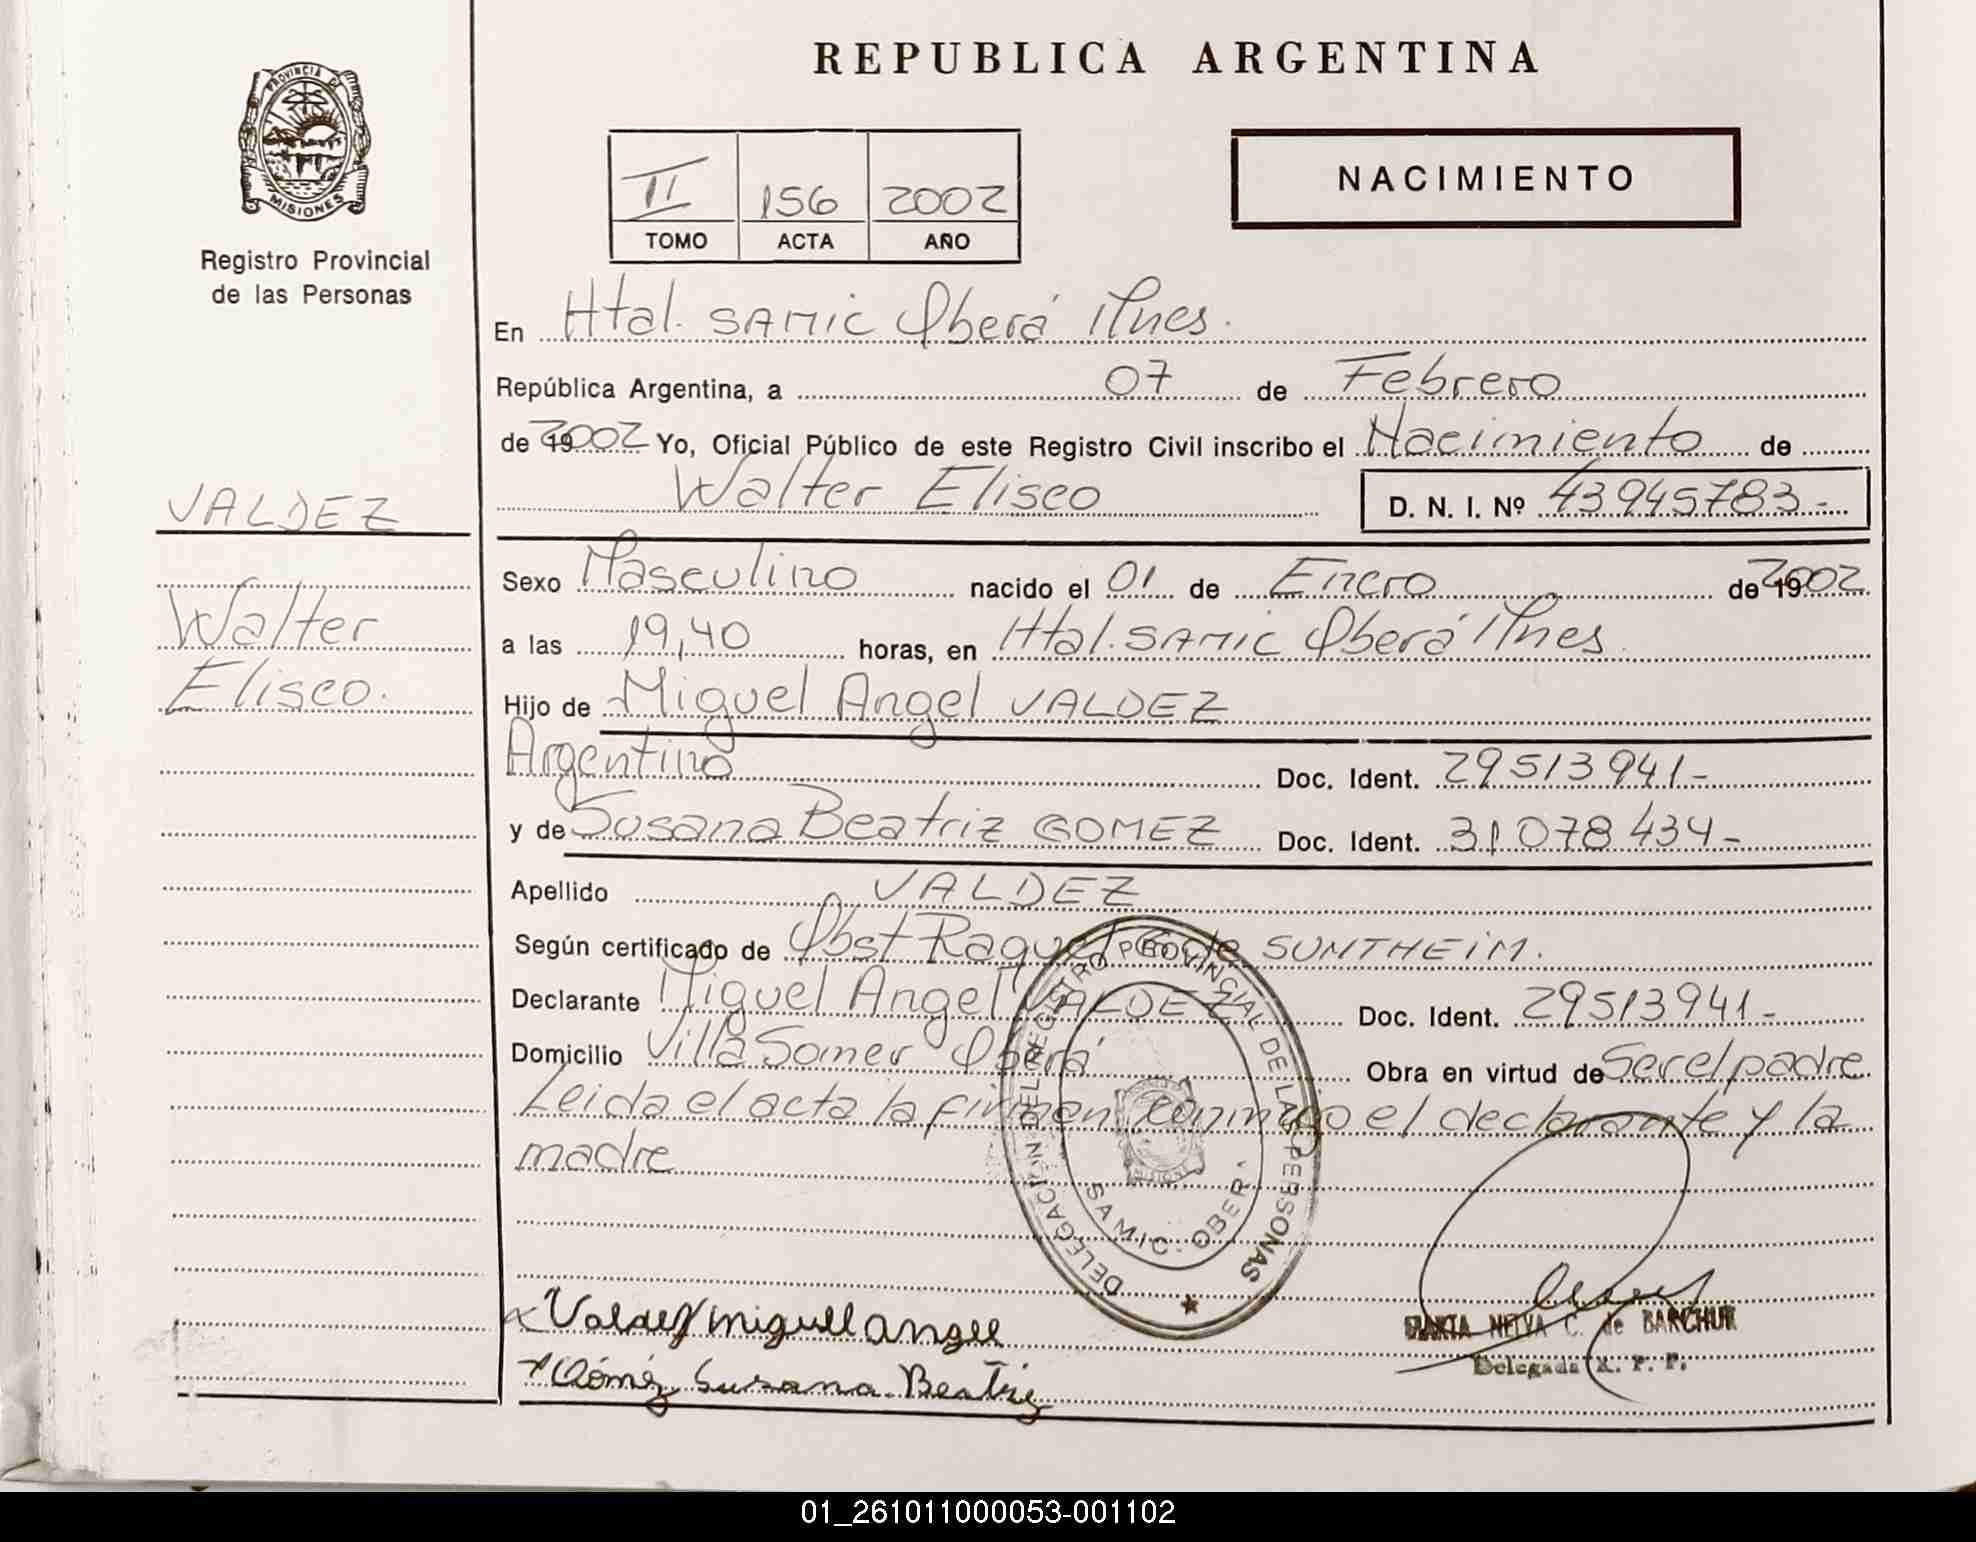 REPUBLICA ARGENTINA
PROVINCIA DE
MISIONES
Registro Provincial
de las Personas
II 156 2002
TOMO ACTA AÑO
NACIMIENTO
En Htal. SAMIC Oberá Mnes.
República Argentina, a 07 de Febrero
de 19 2002 Yo, Oficial Público de este Registro Civil inscribo el Nacimiento de
Walter Eliseo D. N. I. Nº 43945783.-
VALDEZ
Walter
Eliseo.
Sexo Masculino nacido el 01 de Enero de 19 2002
a las 19,40 horas, en Htal. SAMIC Oberá Mnes.
Hijo de Miguel Angel VALDEZ
Argentino Doc. Ident. 29513941-
y de Susana Beatriz GOMEZ Doc. Ident. 31078434-
Apellido VALDEZ
Según certificado de Obst Raquel de SUNTHEIM.
Declarante Miguel Angel VALDEZ Doc. Ident. 29513941-
Domicilio Villa Somer Oberá Obra en virtud de Ser el padre
Leida el acta la firman conmigo el declarante y la
madre
DELEGACION DEL REGISTRO PROVINCIAL DE LAS PERSONAS
SAMIC - OBERA
MISIONES
Valdez miguel angel
Gómez Susana Beatriz
MARTA NELVA C. de BARCHUK
Delegada R. P. P.
01_261011000053-001102